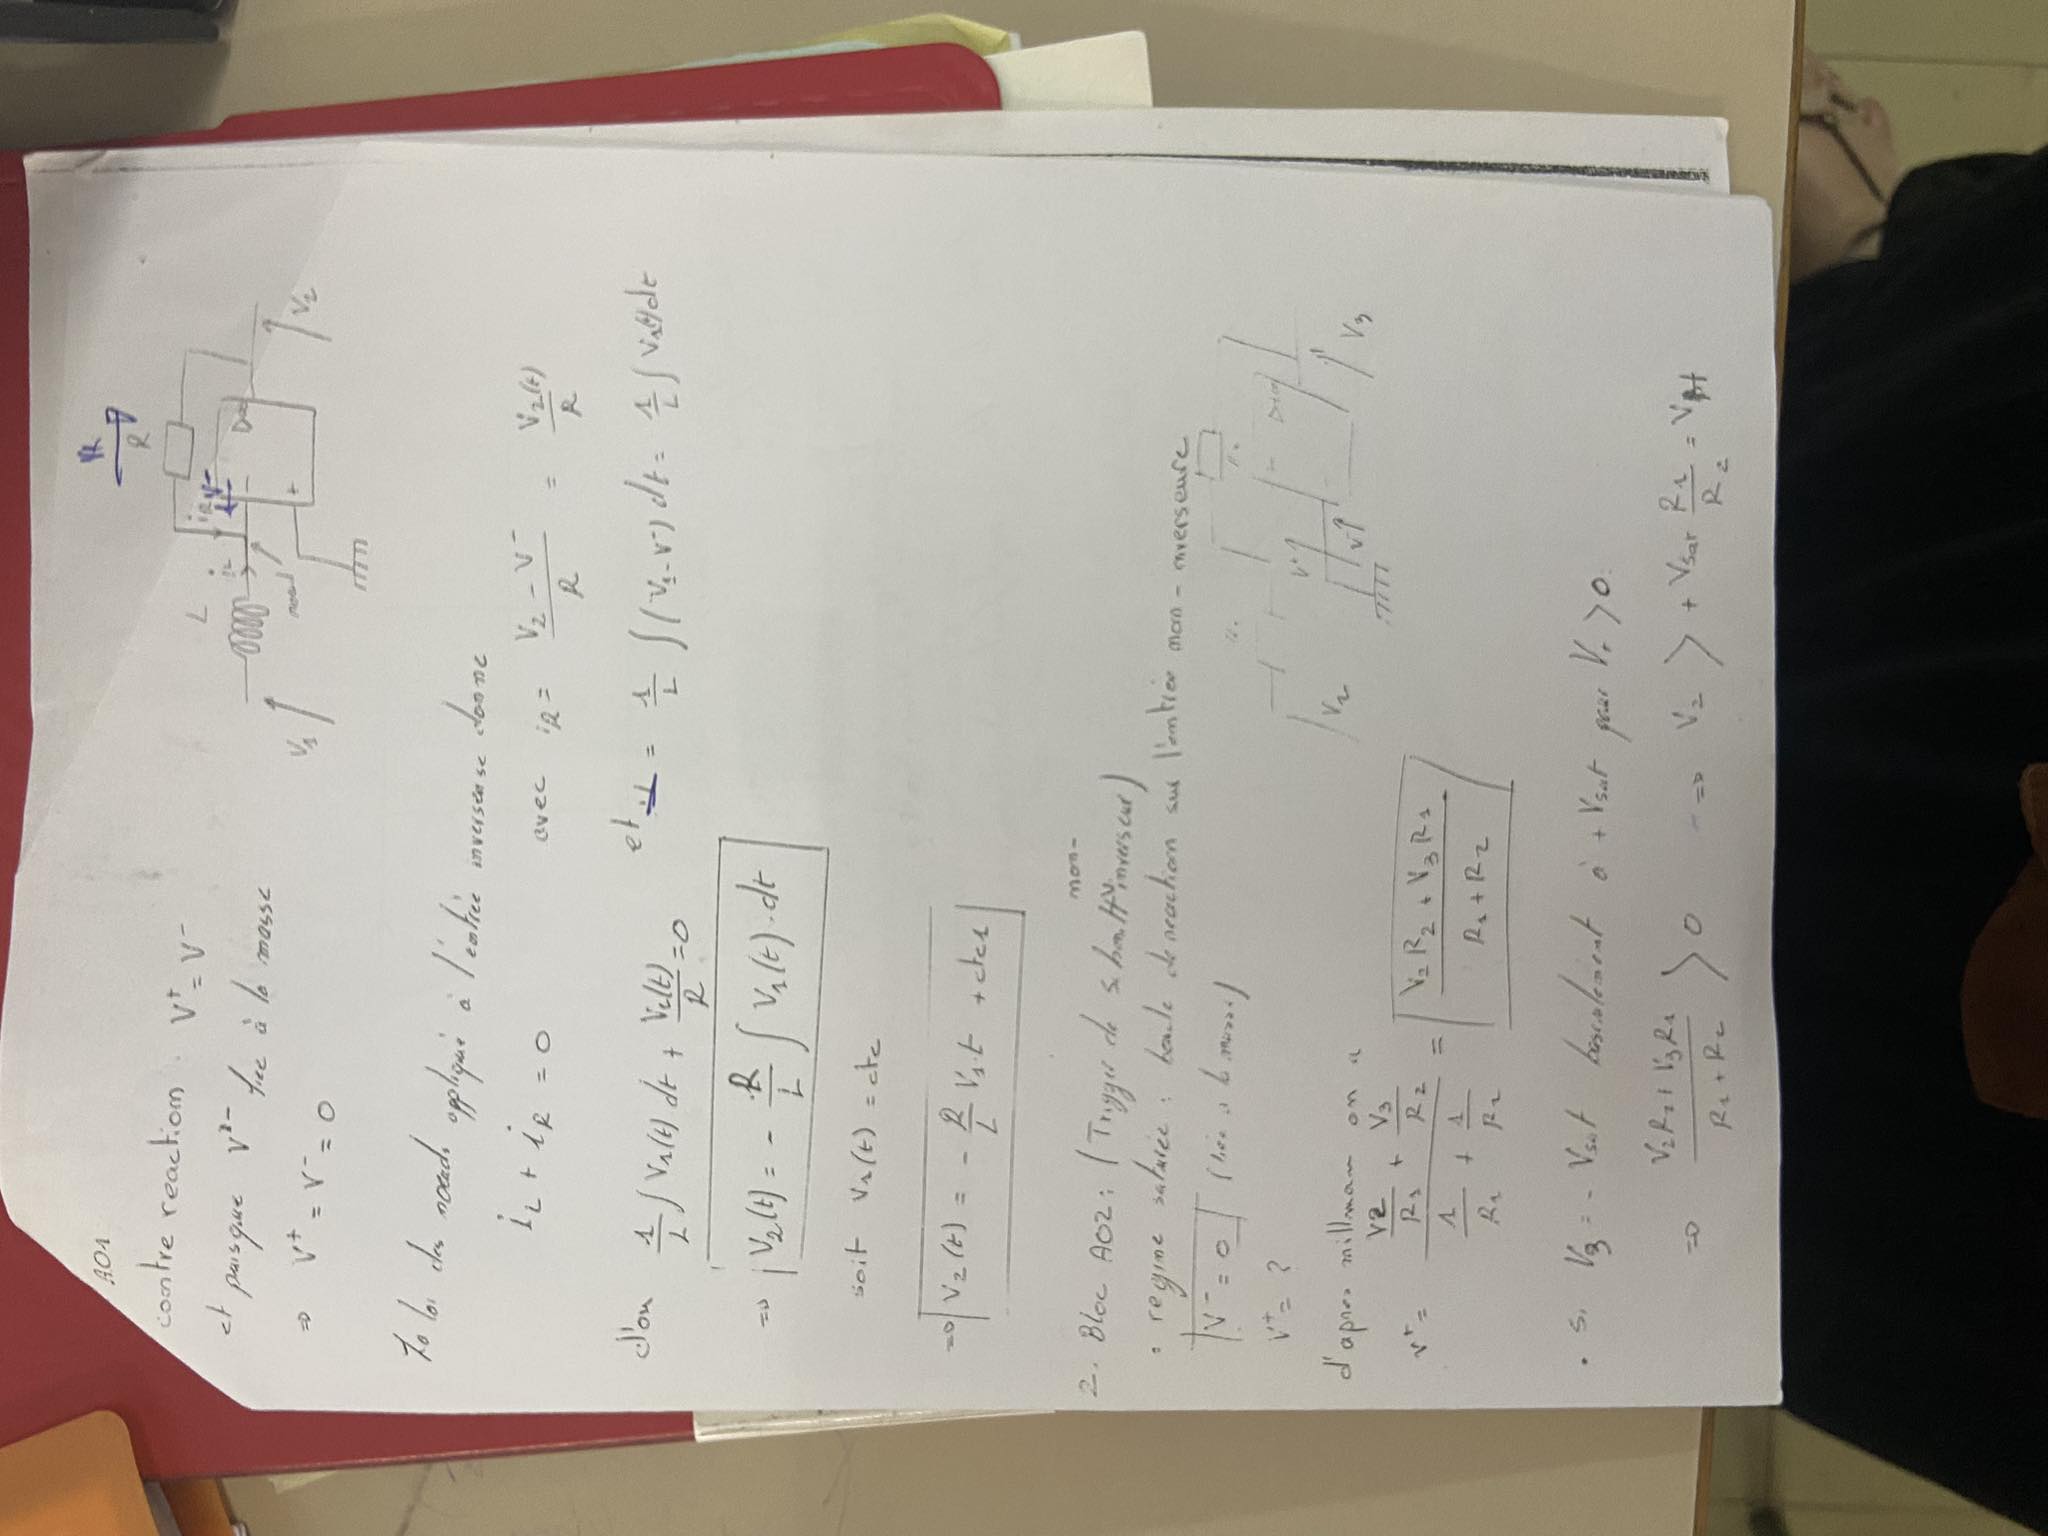 AO1
contre reaction : V⁺ = V⁻
et puisque V⁻ liee à la masse
⇒ V⁺ = V⁻ = 0
R
R
L
iL
iR
V⁻
D∞
noeud
+
V₁
V₂
La loi des noeuds appliqué à l'entrée inverseuse donne
iL + iR = 0 avec iR = (V₂ - V⁻)/R = V₂(t)/R
d'ou 1/L ∫ V₁(t) dt + V₂(t)/R = 0 et iL = 1/L ∫ (V₁ - V⁻) dt = 1/L ∫ V₁(t) dt
⇒ V₂(t) = - R/L ∫ V₁(t) . dt
soit V₁(t) = cte
⇒ V₂(t) = - R/L V₁.t + cte1
2. Bloc AO2 : (Trigger de Schmitt non-inverseur)
• regime saturée : boucle de reaction sur l'entrée non-inverseure
V⁻ = 0 (liée à la masse)
V⁺ = ?
-
D∞
V⁺
V⁻
V₂
V₃
d'apres millman on a
V⁺ = (V2/R₁ + V₃/R₂) / (1/R₁ + 1/R₂) = (V₂R₂ + V₃R₁) / (R₁ + R₂)
• Si V₃ = - Vsat basculement à + Vsat pour V₊ > 0.
⇒ (V₂R₂ + V₃R₁) / (R₁ + R₂) > 0 ⇒ V₂ > + Vsat R₁/R₂ =